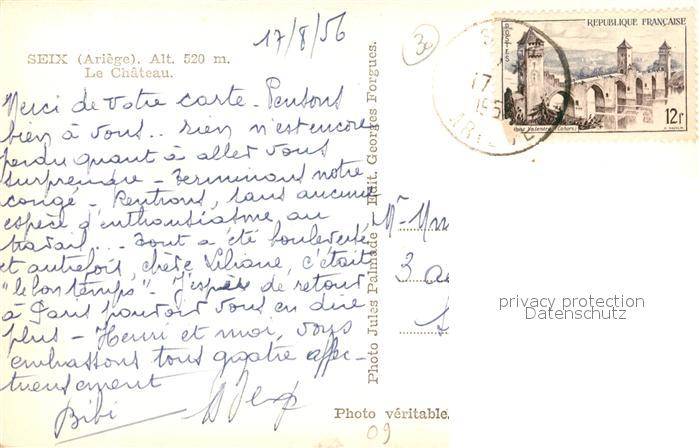 17/8/56
SEIX (Ariège). Alt. 520 m.
Le Château.
Merci de votre carte - Pensons
bien à vous.. rien n'est encore
perdu quant à aller vous
surprendre - Terminons notre
congé - Rentrons, sans aucune
espèce d'enthousiasme, au
travail... Tout a été bouleversé,
et autrefois, chère Liliane, c'était
"le bon temps" - J'espère de retour
à Paris pouvoir vous en dire
plus - Henri et moi, vous
embrassons tous quatre affec-
tueusement
Bibi
Photo Jules Palmade - Edit. Georges Forgues.
Photo véritable.
30
REPUBLIQUE FRANÇAISE
POSTES
Pont Valentré (Cahors)
12f
17
195
Mr
3
privacy protection
Datenschutz
09